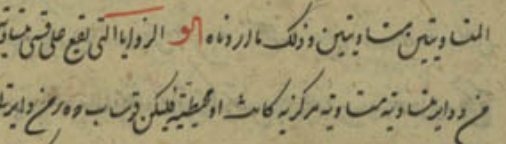 المتساويتين متساويتين وذلك ما اردناه الزوايا التي تقع على قسى متساوية
من دواير متساوية متساوية مركزية كانت او محيطية فليكن قوسا ب ح ه ر من دايرتى